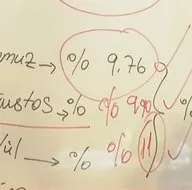 muz → % 9.76
ustos → % % 9.90
ül → % % 11